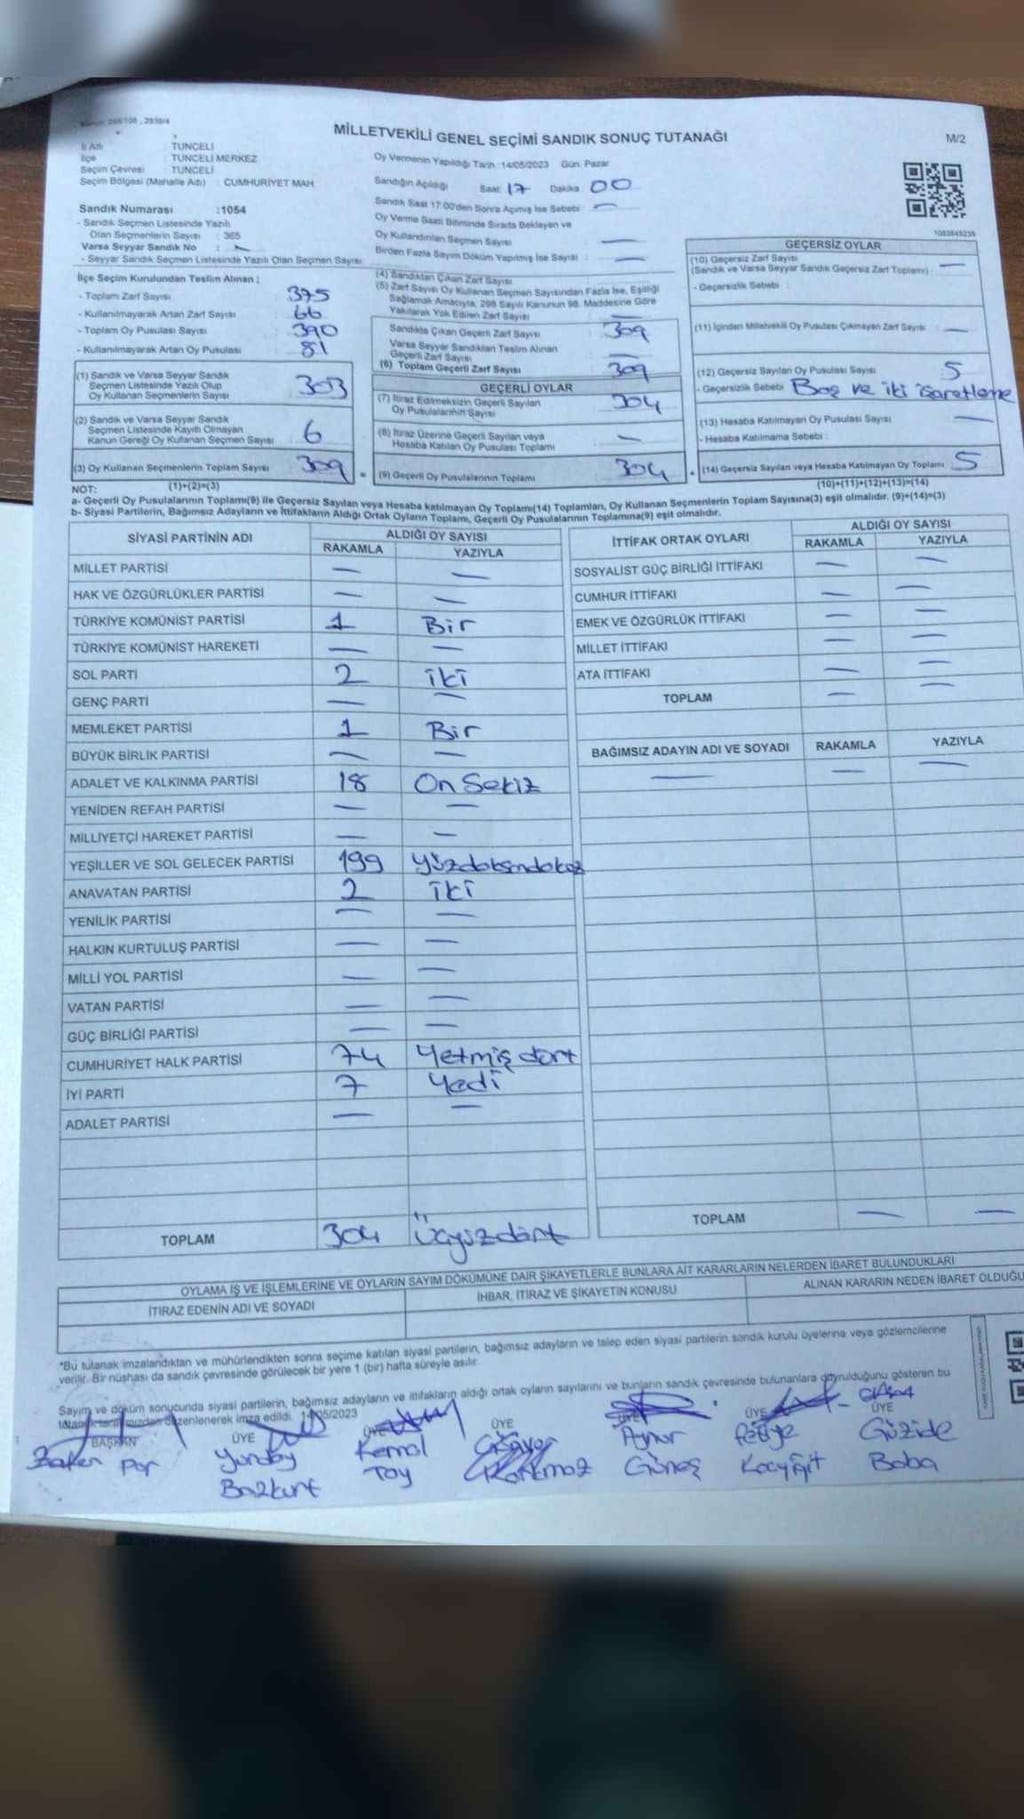 MİLLETVEKİLİ GENEL SEÇİMİ SANDIK SONUÇ TUTANAĞI
M/2
İl Adı TUNCELİ
İlçe TUNCELİ MERKEZ
Seçim Çevresi TUNCELİ
Seçim Bölgesi (Mahalle Adı) : CUMHURİYET MAH.
Sandık Numarası :1054
- Sandık Seçmen Listesinde Yazılı
Olan Seçmenlerin Sayısı : 365
Varsa Seyyar Sandık No : —
- Seyyar Sandık Seçmen Listesinde Yazılı Olan Seçmen Sayısı
Oy Vermenin Yapıldığı Tarih :14/05/2023 Gün: Pazar
Sandığın Açıldığı Saat: 17 Dakika 00
Sandık Saat 17:00'den Sonra Açılmış İse Sebebi : —
Oy Verme Saati Bitiminde Sırada Bekleyen ve
Oy Kullandırılan Seçmen Sayısı —
Birden Fazla Sayım Döküm Yapılmış İse Sayısı : —
İlçe Seçim Kurulundan Teslim Alınan :
- Toplam Zarf Sayısı 375
- Kullanılmayarak Artan Zarf Sayısı 66
- Toplam Oy Pusulası Sayısı 390
- Kullanılmayarak Artan Oy Pusulası 81
(1) Sandık ve Varsa Seyyar Sandık
Seçmen Listesinde Yazılı Olup
Oy Kullanan Seçmenlerin Sayısı 303
(2) Sandık ve Varsa Seyyar Sandık
Seçmen Listesinde Kayıtlı Olmayan
Kanun Gereği Oy Kullanan Seçmen Sayısı 6
(3) Oy Kullanan Seçmenlerin Toplam Sayısı 309
(4) Sandıktan Çıkan Zarf Sayısı
(5) Zarf Sayısı Oy Kullanan Seçmen Sayısından Fazla İse, Eşitliği
Sağlamak Amacıyla, 298 Sayılı Kanunun 98. Maddesine Göre
Yakılarak Yok Edilen Zarf Sayısı —
Sandıkta Çıkan Geçerli Zarf Sayısı 309
Varsa Seyyar Sandıktan Teslim Alınan
Geçerli Zarf Sayısı —
(6) Toplam Geçerli Zarf Sayısı 309
GEÇERLİ OYLAR
(7) İtiraz Edilmeksizin Geçerli Sayılan
Oy Pusulalarının Sayısı 304
(8) İtiraz Üzerine Geçerli Sayılan veya
Hesaba Katılan Oy Pusulası Toplamı —
(9) Geçerli Oy Pusulalarının Toplamı 304
1083845238
GEÇERSİZ OYLAR
(10) Geçersiz Zarf Sayısı
(Sandık ve Varsa Seyyar Sandık Geçersiz Zarf Toplamı) : —
- Geçersizlik Sebebi :
(11) İçinden Milletvekili Oy Pusulası Çıkmayan Zarf Sayısı : —
(12) Geçersiz Sayılan Oy Pusulası Sayısı 5
- Geçersizlik Sebebi Boş ve iki işaretleme
(13) Hesaba Katılmayan Oy Pusulası Sayısı —
- Hesaba Katılmama Sebebi :
(14) Geçersiz Sayılan veya Hesaba Katılmayan Oy Toplamı 5
NOT: (1)+(2)=(3) (10)+(11)+(12)+(13)=(14)
a- Geçerli Oy Pusulalarının Toplamı(9) ile Geçersiz Sayılan veya Hesaba katılmayan Oy Toplamı(14) Toplamları, Oy Kullanan Seçmenlerin Toplam Sayısına(3) eşit olmalıdır. (9)+(14)=(3)
b- Siyasi Partilerin, Bağımsız Adayların ve İttifakların Aldığı Ortak Oyların Toplamı, Geçerli Oy Pusulalarının Toplamına(9) eşit olmalıdır.
SİYASİ PARTİNİN ADI ALDIĞI OY SAYISI
RAKAMLA YAZIYLA
MİLLET PARTİSİ — —
HAK VE ÖZGÜRLÜKLER PARTİSİ — —
TÜRKİYE KOMÜNİST PARTİSİ 1 Bir
TÜRKİYE KOMÜNİST HAREKETİ — —
SOL PARTİ 2 iki
GENÇ PARTİ — —
MEMLEKET PARTİSİ 1 Bir
BÜYÜK BİRLİK PARTİSİ — —
ADALET VE KALKINMA PARTİSİ 18 On Sekiz
YENİDEN REFAH PARTİSİ — —
MİLLİYETÇİ HAREKET PARTİSİ — —
YEŞİLLER VE SOL GELECEK PARTİSİ 199
ANAVATAN PARTİSİ 2 iki
YENİLİK PARTİSİ — —
HALKIN KURTULUŞ PARTİSİ — —
MİLLİ YOL PARTİSİ — —
VATAN PARTİSİ — —
GÜÇ BİRLİĞİ PARTİSİ — —
CUMHURİYET HALK PARTİSİ 74 Yetmiş dört
İYİ PARTİ 7 Yedi
ADALET PARTİSİ — —
TOPLAM 304 Üçyüzdört
İTTİFAK ORTAK OYLARI ALDIĞI OY SAYISI
RAKAMLA YAZIYLA
SOSYALİST GÜÇ BİRLİĞİ İTTİFAKI — —
CUMHUR İTTİFAKI — —
EMEK VE ÖZGÜRLÜK İTTİFAKI — —
MİLLET İTTİFAKI — —
ATA İTTİFAKI — —
TOPLAM — —
BAĞIMSIZ ADAYIN ADI VE SOYADI RAKAMLA YAZIYLA
— — —
TOPLAM — —
OYLAMA İŞ VE İŞLEMLERİNE VE OYLARIN SAYIM DÖKÜMÜNE DAİR ŞİKAYETLERLE BUNLARA AİT KARARLARIN NELERDEN İBARET BULUNDUKLARI
İTİRAZ EDENİN ADI VE SOYADI İHBAR, İTİRAZ VE ŞİKAYETİN KONUSU ALINAN KARARIN NEDEN İBARET OLDUĞU
*Bu tutanak imzalandıktan ve mühürlendikten sonra seçime katılan siyasi partilerin, bağımsız adayların ve talep eden siyasi partilerin sandık kurulu üyelerine veya gözlemcilerine
verilir. Bir nüshası da sandık çevresinde görülecek bir yere 1 (bir) hafta süreyle asılır.
Sayım ve döküm sonucunda siyasi partilerin, bağımsız adayların ve ittifakların aldığı ortak oyların sayılarını ve bunların sandık çevresinde bulunanlara duyrulduğunu gösteren bu
düzenlenerek imza edildi.
BAŞKAN ÜYE ÜYE ÜYE ÜYE ÜYE ÜYE
Kemal Aynur Güzide
Bozkurt Toy Korkmaz Güneş Koçyiğit Baba